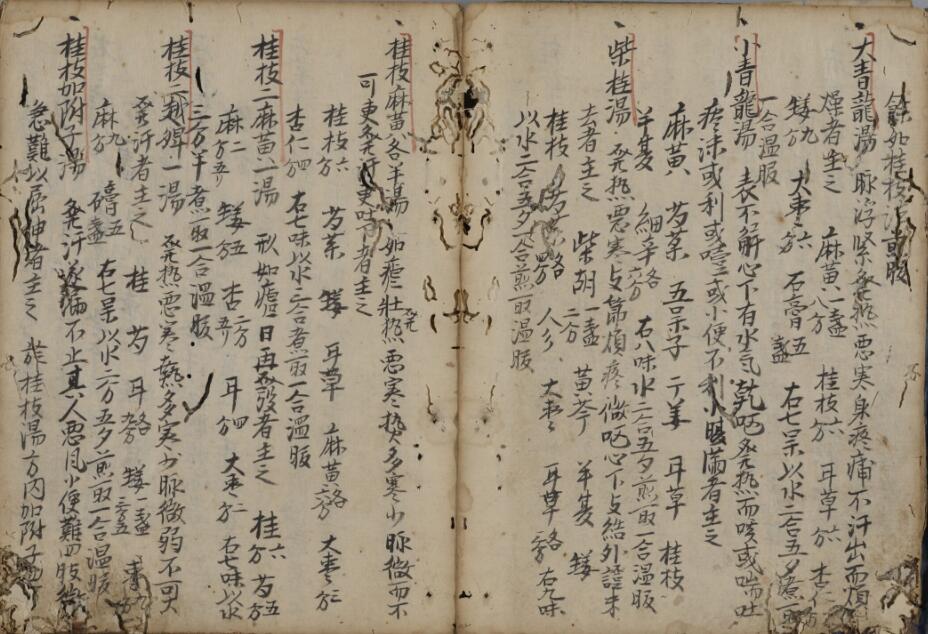 餘如桂枝法或服
大青龍湯 脉浮緊発熱悪寒身疼痛不汗出而煩
燥者主之 麻黄一盞八分 桂枝六分 耳草六分 杏仁
大枣 石膏五盞 右七呆以水二合五夕煮取
一合温服
小青龍湯 表不解心下有水気乾呕発熱而咳或喘吐
或利或噎或小便不利小腹満者主之
麻黄 芍薬 五呆子 干姜 耳草 桂枝
半夏 細辛 右八味水二合五夕煎取一合温服
柴桂湯 発熱悪寒支節煩疼微呕心下支結外證未
去者主之 柴胡一盞二分 黄芩 半夏
桂枝 芍薬 人参 大枣 耳草 右九味
以水二合五夕一合煎取温服
桂枝麻黄各半湯 如瘧壮発熱悪寒熱多寒少脉微而不
可更発汗更吐下者主之
桂枝六分 芍薬 耳草 麻黄 大枣二分
杏仁四分 右七味以水二合煮取一合温服
桂枝二麻黄一湯 形如瘧日再発者主之 桂六分 芍五分
麻二分 杏二分 耳四分 大枣二分 右七味以水
三分半煮取一合温服
桂枝二越婢一湯 発熱悪寒熱多寒少脉微弱不可大
発汗者主之 桂 芍 耳
麻九分 右七呆以水二分五夕煎取一合温服
桂枝加附子湯 発汗遂漏不止其人悪風小便難四肢微
急難以屈伸者主之 於桂枝湯方内加附子